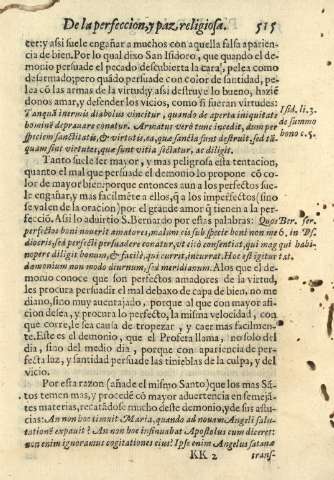 De la perfeccion, y paz, religiosa. 515
cer: y assi suele engañar a muchos con aquella falsa aparien-
cia de bien. Por lo qual dixo San Isidoro, que quando el de-
monio persuade el pecado descubierta la cara, pelea como
desarmado; pero quãdo persuade con color de santidad, pe-
lea cõ las armas de la virtud y assi destruye lo bueno, haziẽ
donos amar, y defender los vicios, como si fueran virtudes:
Tanquã inermis diabolus vincitur, quando de aperta iniquitate
hominẽ deprauare conatur. Armatur verò tunc incedit, dum per
speciem sanctitatis, & virtutis, ea, que sancta sunt destruit, sed tã-
quam sint virtutes, que sunt vitia sectatur, ac diligit.
Isid. li. 3.
de summo
bono c. 5.
Tanto suele ser mayor, y mas peligrosa esta tentacion,
quanto el mal que persuade el demonio lo propone cõ co-
lor de mayor bien: porque entonces aun a los perfectos sue-
le engañar, y mas facilmẽte a ellos, q̃ a los imperfectos (sino
se valen de la oracion) por el grande amor q̃ tienen a la per-
fecciõ. Assi lo aduirtio S. Bernardo por estas palabras: Quos
perfectos boni nouerit amatores, malum eis sub specie boni non me
diocris, sed perfecti persuadere conatur, vt citò consentiat, qui mag
nopere diligit bonum, & facilè, qui currit, incurrat. Hoc est igitur
dæmonium non modo diurnum, sed meridianum. A los que el de-
Ber. ser.
6. in Ps.
qui habi-
tat.
monio conoce que son perfectos amadores de la virtud,
les procura persuadir el mal debaxo de capa de bien, no me
diano, sino muy auentajado, porque al que con mayor afi-
cion desea, y procura lo perfecto, la misma velocidad, con
que corre, le sea causa de tropezar, y caer mas facilmen-
te. Este es el demonio, que el Profeta llama, no solo del
dia, sino del medio dia, porque con apariencia de per-
fecta luz, y santidad persuade las tinieblas de la culpa, y del
vicio.
Por esta razon (añade el mismo Santo) que los mas Sã-
tos temen mas, y procedẽ cõ mayor aduertencia en semejã-
tes materias, recatãdose mucho deste demonio, y de sus astu-
cias: An non hoc timuit Maria, quando ad nouam Angeli salu-
tationẽ expauit? An non hoc insinuabat Apostolus cum diceret:
non enim ignoramus cogitationes eius? Ipse enim Angelus satanæ
KK 2
trans-